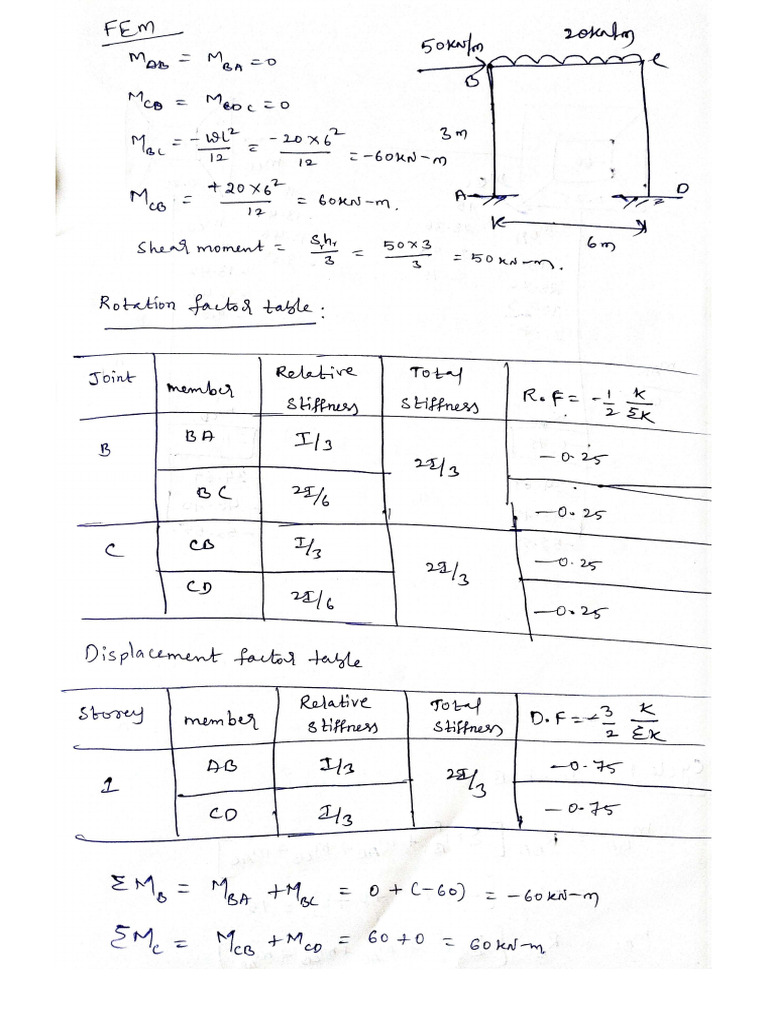 FEM
50KN/m
20KN/m
M_AB = M_BA = 0
B
C
M_CD = M_DC = 0
M_BC = -wl²/12 = -20×6²/12 = -60KN-m
3m
M_CB = +20×6²/12 = 60KN-m.
A
D
6m
Shear moment = S_r h_r/3 = 50×3/3 = 50KN-m.
Rotation factor table:
Joint | member | Relative Stiffness | Total Stiffness | R.F = -1/2 K/ΣK
B | BA | I/3 | 2I/3 | -0.25
BC | 2I/6 | -0.25
C | CB | I/3 | 2I/3 | -0.25
CD | 2I/6 | -0.25
Displacement factor table
Storey | member | Relative Stiffness | Total Stiffness | D.F = -3/2 K/ΣK
1 | AB | I/3 | 2I/3 | -0.75
CD | I/3 | -0.75
ΣM_B = M_BA + M_BC = 0 + (-60) = -60KN-m
ΣM_C = M_CB + M_CD = 60 + 0 = 60KN-m